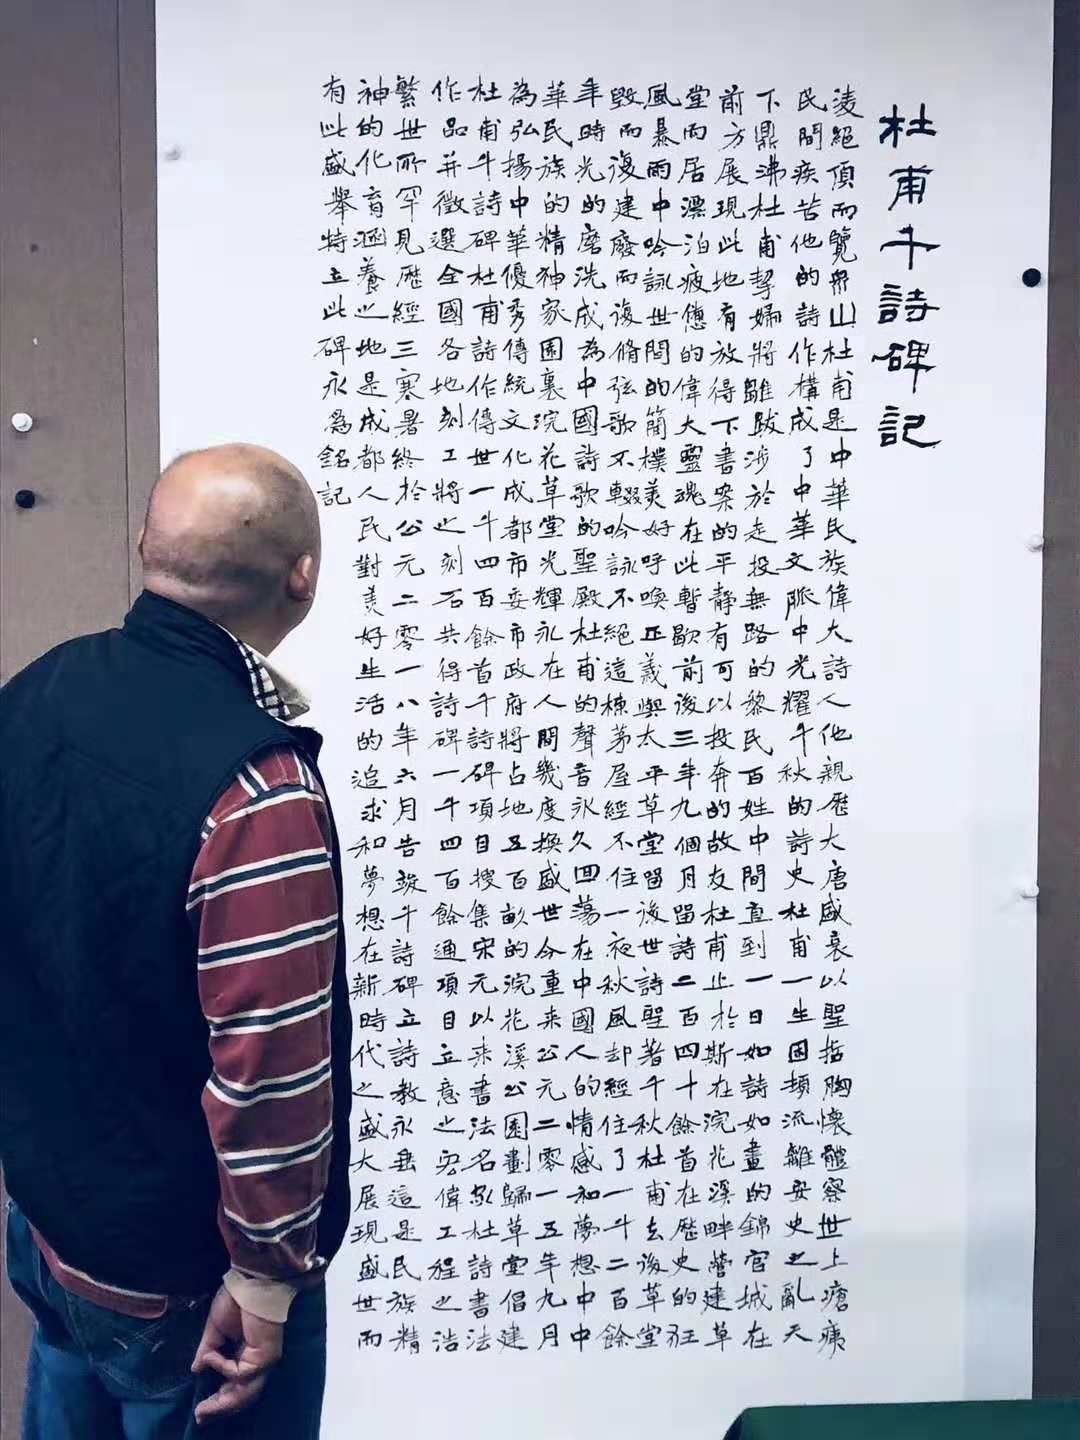 杜甫千詩碑記
凌絕頂而覽衆山杜甫是中華民族偉大詩人他親歷大唐盛衰以聖哲胸懷體察世上瘡痍
民間疾苦他的詩作構成了中華文脈中光耀千秋的詩史杜甫一生困頓流離安史之亂天
下鼎沸杜甫挈婦將雛跋涉於走投無路的黎民百姓中間直到一日如詩如畫的錦官城在
前方展現此地有放得下書案的平靜有可以投奔的故友杜甫止於斯在浣花溪畔營建草
堂而居漂泊疲憊的偉大靈魂在此暫歇前後三年九個月留詩二百四十餘首在歷史的狂
風暴雨中吟詠世間的簡樸美好呼喚正義與太平草堂留後世詩聖著千秋杜甫去後草堂
毀而復建廢而復脩弦歌不輟吟詠不絕這棟茅屋經不住一夜秋風却經住了一千二百餘
年時光的磨洗成為中國詩歌的聖殿杜甫的聲音永久回蕩在中國人的情感和夢想中中
華民族的精神家園裏浣花草堂光輝永在人間幾度換盛世今重来公元二零一五年九月
為弘揚中華優秀傳統文化成都市委市政府將占地五百畝的浣花溪公園劃歸草堂倡建
杜甫千詩碑杜甫詩作傳世一千四百餘首千詩碑項目搜集宋元以来書法名家杜詩書法
作品并徵選全國各地刻工將之刻石共得詩碑一千四百餘通項目立意之宏偉工程之浩
繁世所罕見歷經三寒暑終於公元二零一八年六月告竣千詩碑立詩教永垂這是民族精
神的化育涵養之地是成都人民對美好生活的追求和夢想在新時代之盛大展現盛世而
有此盛舉特立此碑永為銘記